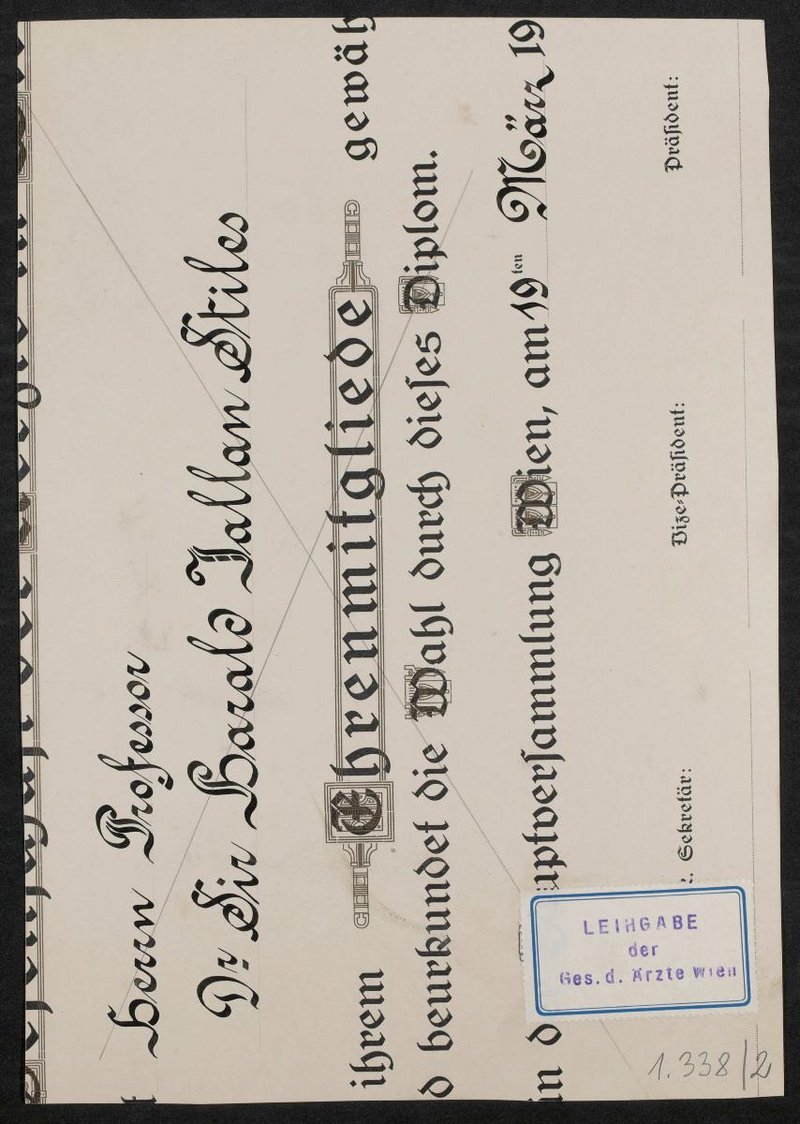 Herrn Professor
Dr. Sir Harald Jallan Stiles
ihrem Ehrenmitgliede gewäh
d beurkundet die Wahl durch dieses Diplom.
in d uptversammlung Wien, am 19ten März 19
r. Sekretär: Vize-Präsident: Präsident:
LEIHGABE
der
Ges. d. Ärzte Wien
1.338/2